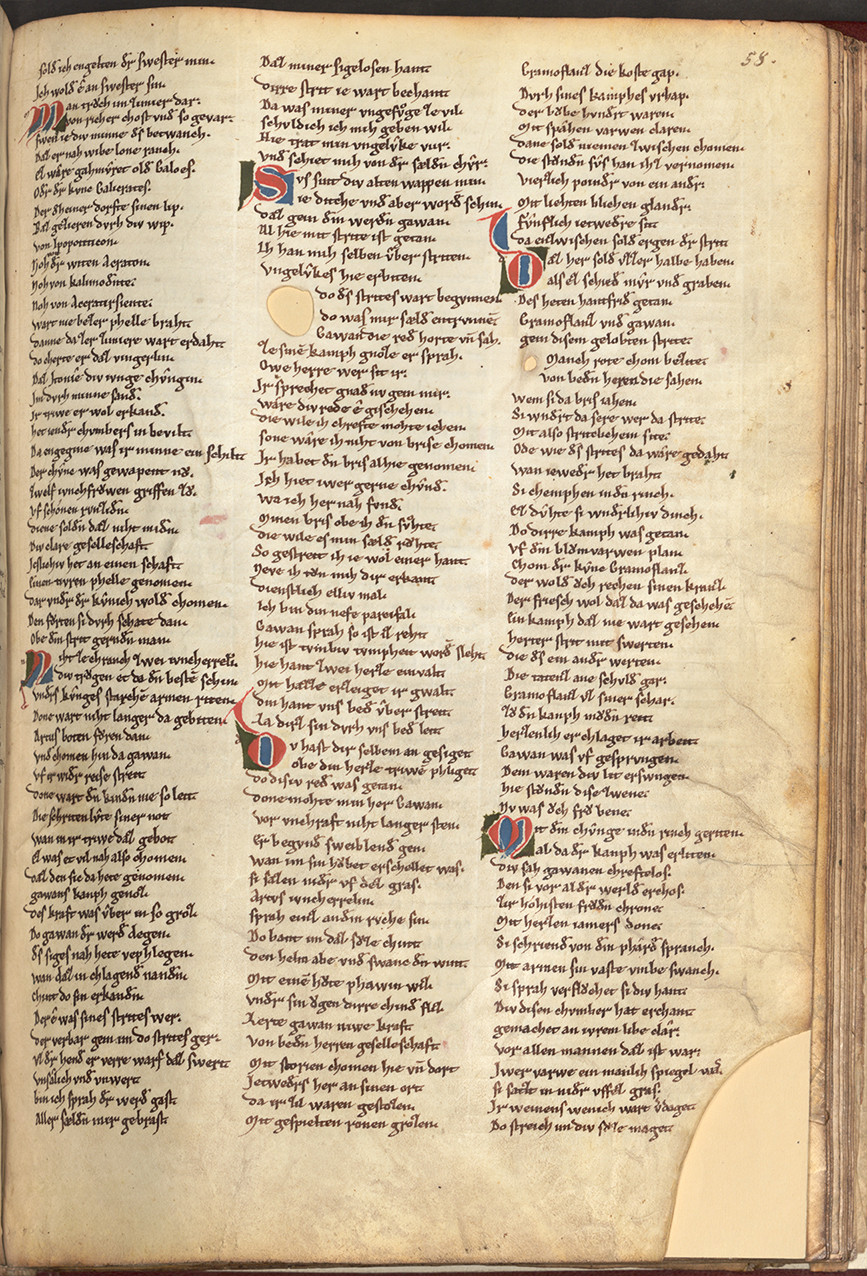 58.
sold ich engelten dˀ swester min.
Ich wold ê an swester sin.
Man trvͦch im lumier dar:
von richer chost vnd so gevar.
swen ie div minne des betwanch.
Daz er nah wibe lone ranch.
Ez wære gahmvret old Galoes.
Odˀ dˀ kvnc
Der dheiner dorfte sinen lip.
Baz gezieren dvrh div wip.
von Ipopotiticon.
Noh von dˀ witen Acraton.
Noh von kalomidente.
Noh von Agatirsiente.
wart nie bezer phelle braht.
danne da zer zimiere wart erdaht
do cherte er daz vingerlin.
Daz Itonie div ivnge chvngin.
Im dvrh minne sand.
Ir triwe er wol erkand.
het iendˀ chvmbers in bevilt.
Da engegine was ir minne ein schilt
Der chvnc was gewapent nv.
zwelf ivnchfrowen griffen zv.
vf schonen rvnzidin.
diene soldn daz niht midn.
Div clare geselleschaft
Jeslichiv het an einen schaft
Einen tivren phelle genomen.
dar vndˀ dˀ kvnich wold chomen.
Den fvrten si dvrh schate dan.
Obe dem strit gerndn man.
Niht ze chranch zwei ivncherrelin.
div trvgen et da dn besten schin
vndˀs kvnges starchen armen riten.
Done wart niht langer da gebiten.
Artvs boten fvren dan.
vnd chomen hin da gawan.
vf ir widˀ reise streit
done wart dn kindn nie so leit
Die schriten lvte siner not
wan in ir triwe daz gebot
Ez was et vil nah also chomen
daz den sic da hete genomen.
gawans kamph genoz.
des kraft was vber in so groz.
Do gawan dˀ werd degen.
des siges nah hete verphlegen.
wan daz in chlagend nandin
chint do sin erkandin.
Der ê was sines strites wer.
der verbar gein im do strites ger.
vz dˀ hend er verre warf daz swert
vnsælich vnd vnwert
bin ich sprah dˀ werd gast
Aller sældn mir gebrast
Daz miner sigelosen hant
dirre strit ie wart bechant
Da was miner vngefvge ze vil
schvldich ich mich geben wil.
Hie trat min vngelvke fvr.
vnd schiet mich von dˀ sældn chvr.
Svs sint div alten wappen min.
ie diche vnd aber word schin.
daz gein dem werdn gawan.
Al hie mit strite ist getan.
Ich han mich selben vber striten.
vngelvkes hie erbiten.
do des strites wart begvnnen
do was mir sæld entrvnnen.
Gawan die red horte vn̄ sah.
ze sinē kamph gnoze er sprah.
Owe herre wer sit ir.
Ir sprechet gnad iv gein mir.
wære div rede ê geschehen.
die wile ich chrefte mohte iehen.
sone wære ich niht von brise chomen
Ir habet dn bris alhie genomen.
Ich hiet iwer gerne chvnd.
wa ich her nah fvnd.
Minen bris obe ich dn svhte.
die wile es min sæld rvhte.
So gestreit ich ie wol einer hant.
Neve ich tvn mich dir erkant
dienstlich elliv mal.
Ich bin din nefe parcifal.
Gawan sprah so ist iz reht
hie ist trvmbiv tvmpheit word sleht.
hie hant zwei herze einvalt
mit hazze erzeiget ir gwalt.
din hant vns bed vber streit.
La dirz sin dvrh vns bed leit
Dv hast dir selbem an gesiget
obe din herze triwen phliget
do disiv red was getan.
done mohte min her Gawan.
vor vnchraft niht langer sten.
Er begvnd sweiblend gen.
wan im sin hovbet erschellet was.
si salen nidˀ vf dez gras.
Artvs ivncherrelin.
sprah einz andin rvche sin.
Do bant im daz svze chint
den helm abe vnd swanc dn wint.
mit einē hvte phæwin wiz.
vndˀ sin ovgen dirre chind fliz.
Lerte gawan niwe kraft
von bedn herren geselleschaft
Mit storien chomen hie vn̄ dort
Jetwedˀs her an sinen ort
da ir zil waren gestozen.
mit gespielten ronen grozen.
Gramoflanz die koste gap.
Dvrh sines kamphes vrhap.
der bovme hvndˀt waren.
Mit spæhen varwen claren.
dane sold niemen zwischen chomen.
die stvndn svs han ihz vernomen.
vierzich poindˀ von ein andˀ.
Mit liehten blichen glandˀ.
Fvnfzich ietwedˀe sit
Da enzwischen sold ergen dˀ strit
Daz her sold vzzer halbe haben.
als ez schied mvr vnd graben.
Des heten hantfrid getan.
Gramoflanz vnd gawan.
gein disem gelobten strite.
Manch rote chom bezite.
von bedn heren die sahen.
wem si da bris iahen.
Si wndˀt da sere wer da strite.
Mit also stritlichem site.
Ode wie des strites da wære gedaht
wan iewedˀ het braht.
Si chemphen indn rinch.
Ez dvhte si wndˀlichiv dinch.
Do dirre kamph was getan.
vf dem blvmvarwen plan.
Chom dˀ kvnc Gramoflanz.
der wold ovch rechen sinen kranz.
Der friesch wol daz da was geschehē
Ein kamph daz nie wart gesehen.
herter strit mit swerten.
die des ein andˀ werten.
Die tatenz ane schvlde gar.
Gramoflanz vz siner schar.
zv dn kamph mvdn reit
herzenlich er chlaget ir arbeit.
Gawan was vf gesprvngen.
Dem waren div lit erswngen.
hie stvndn dise zwene.
Nv was ovch frow bene.
Mit dem chvnge indn rinch geriten.
al da dˀ kamph was erliten.
div sah gawanen chreftelos.
Den si vor al dˀ werld erchos.
zir hohisten frovdn chrone.
Mit herzen iamers done.
Si schriend von dem phærd spranch.
Mit armen sin vaste vmbe swanch.
Si sprah verflvchet si div hant.
Div disen chvmber hat erchant
gemachet an iwrem libe clar.
vor allen mannen daz ist war.
Iwer varwe ein manlich spiegel was.
si satzt in nidˀ vffez gras.
Ir weinens wenich wart vˀdaget
Do streich im div svze maget